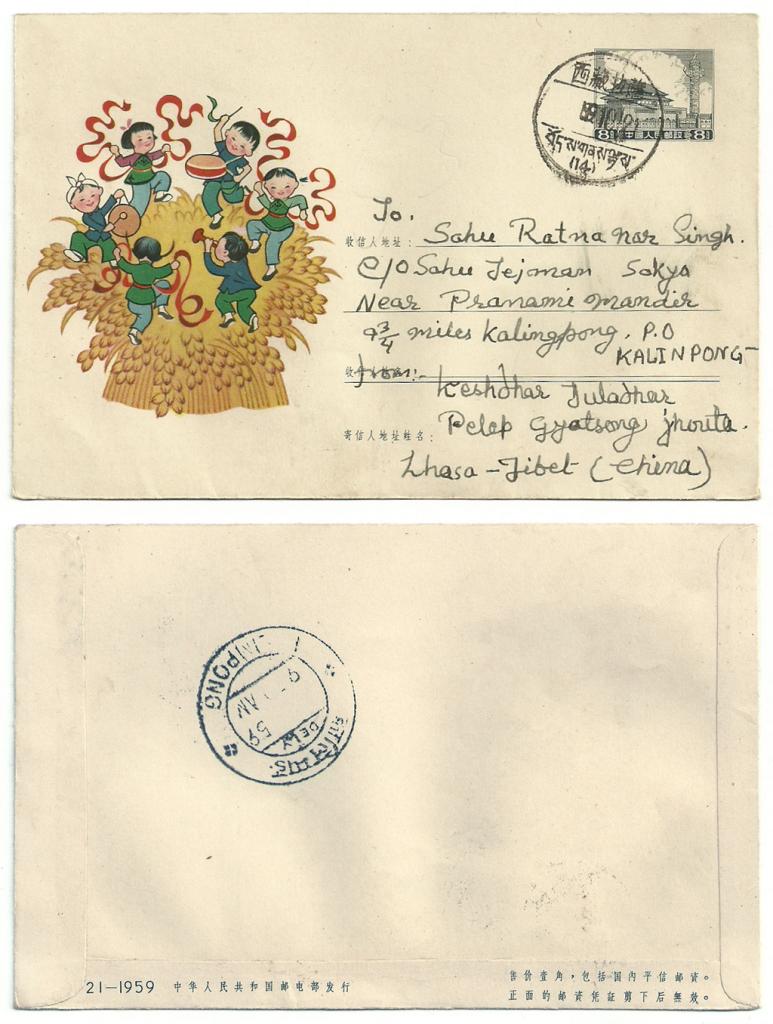 西藏拉薩
59.10.10
(14)
8 中國人民郵政 8
To.
收信人地址: Sahu Ratna nar Singh.
C/O Sahu Tejman Sakya
Near Pranami Mandir
9 3/4 miles Kalingpong, P.O
KALINPONG
from:-
Keshdhar Tuladhar
寄信人地址姓名: Pelep Gyatsong jhouta.
Lhasa - Tibet (China)
INPONG
9
AM
59
DELY
21—1959 中华人民共和国邮电部发行
售价壹角，包括国内平信邮资。
正面的邮资凭証剪下后無效。